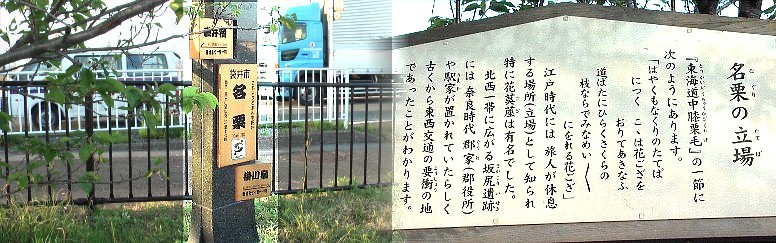 袋井宿
袋井市
名栗
掛川宿
名栗の立場
なぐり
たてば
『東海道中膝栗毛』の一節に
とうかいどうちゅうひざくりげ
次のようにあります。
「はやくもなくりのたてば
につく こゝは花ござを
おりてあきなふ
道ばたにひらくさくらの
枝ならでみなめい〳〵
にをれる花ござ」
江戸時代には 旅人が休息
する場所(立場)として知られ
特に花茣蓙は有名でした。
北西一帯に広がる坂尻遺跡
には 奈良時代 郡家(郡役所)
や駅家が置かれていたらしく
古くから東西交通の要衝の地
であったことがわかります。